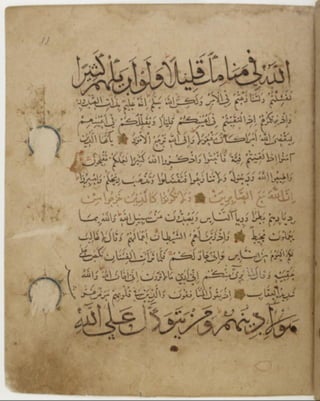 الله في منامك قليلا ولو أريكهم كثيرا
لفشلتم ولتنازعتم في الأمر ولكن الله سلم إنه عليم بذات الصدور
وإذ يريكموهم إذ التقيتم في أعينكم قليلا ويقللكم في أعينهم
ليقضي الله أمرا كان مفعولا وإلى الله ترجع الأمور يا أيها الذين
آمنوا إذا لقيتم فئة فاثبتوا واذكروا الله كثيرا لعلكم تفلحون
وأطيعوا الله ورسوله ولا تنازعوا فتفشلوا وتذهب ريحكم واصبروا
إن الله مع الصابرين ولا تكونوا كالذين خرجوا من
ديارهم بطرا ورئاء الناس ويصدون عن سبيل الله والله بما
يعملون محيط وإذ زين لهم الشيطان أعمالهم وقال لا غالب
لكم اليوم من الناس وإني جار لكم فلما تراءت الفئتان نكص على
عقبيه وقال إني بريء منكم إني أرى ما لا ترون إني أخاف الله والله
شديد العقاب إذ يقول المنافقون والذين في قلوبهم مرض غر
هؤلاء دينهم ومن يتوكل على الله